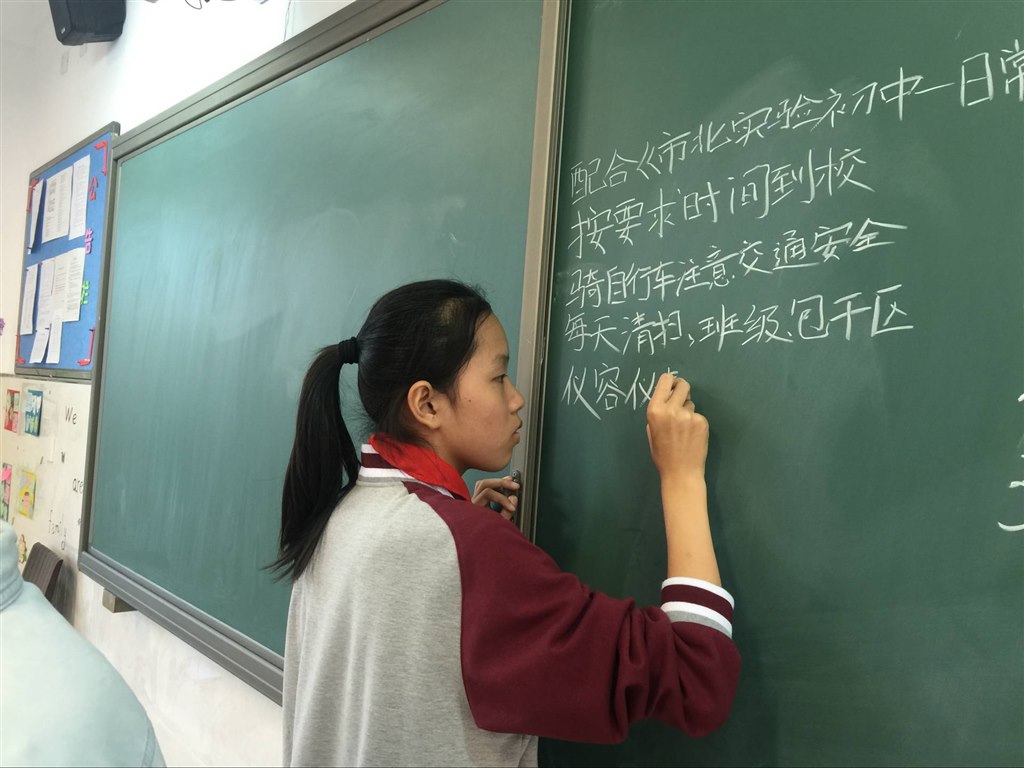 公
告
栏
We
are
family
配合《市北实验初中一日常
按要求时间到校
骑自行车注意交通安全
每天清扫、班级包干区
仪容仪